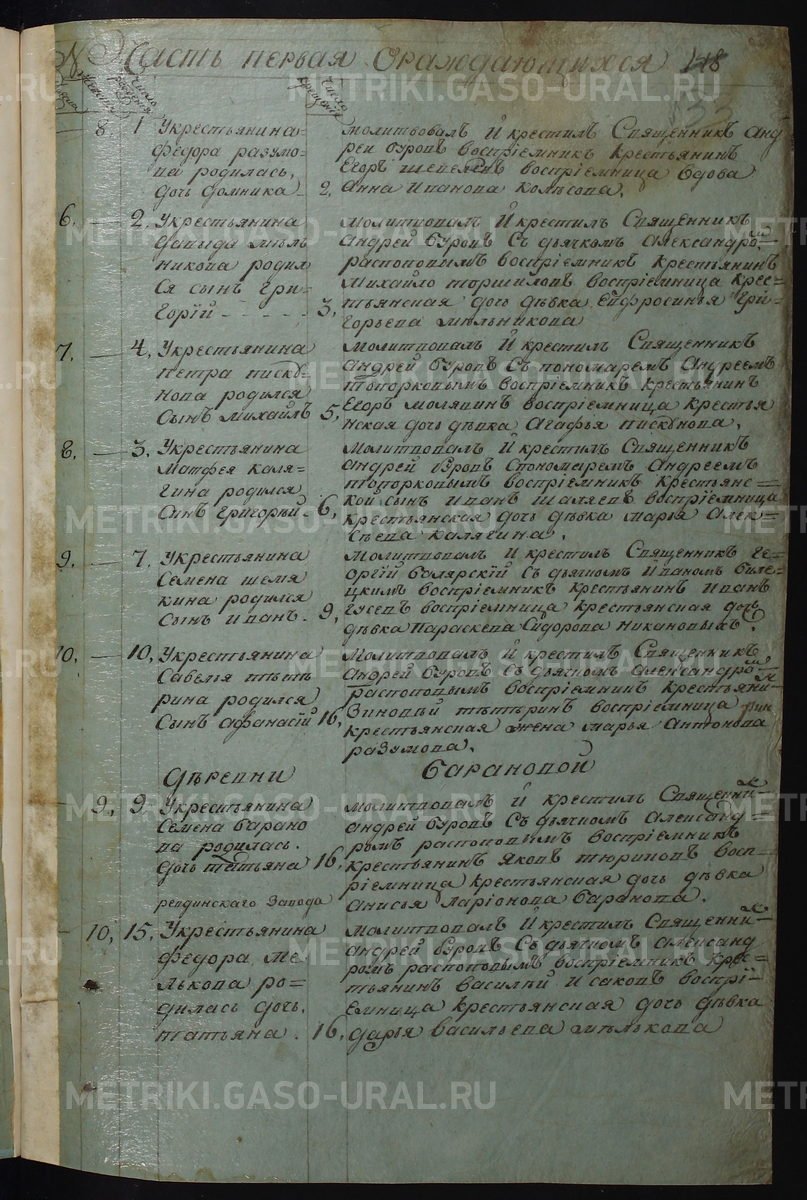 Часть первая ораждающихся 118
№
Число рождения
Число крещения
8 1 Укрестьянина
федора разумо-
ва родилась,
дочь домника
молитвовалъ и крестилъ Священникъ Анд
рей буровъ воспріемникъ крестьянинъ
Егоръ шепелевъ воспріемница вдова
2, Анна Иванова колѣсова,
6, — 2, Укрестьянина
давида мѣль
никова родил
ся сынъ гри-
горій
молитвовалъ и крестилъ Священникъ
андрей буровъ съ дьячкомъ александромъ
распоповымъ воспріемникъ крестьянинъ
михайло торшиловъ воспріемница крес=
3, тьянская дочь дѣвка ейфросинья гри
горьева мѣльникова
7, — 4, Укрестьянина
петра писку-
нова родился
сынъ михайлъ
молитвовалъ и крестилъ Священникъ
андрей буровъ съ пономаремъ андреемъ
топорковымъ воспріемникъ крестьянинъ
Егоръ молявинъ воспріемница крестья
5, нская дочь дѣвка агафья пискунова,
8, — 3, Укрестьянина
матфея каля-
гина родился
сынъ григорьй
молитвовалъ и крестилъ Священникъ
андрей буровъ спономаремъ андреемъ
топорковымъ воспріемникъ крестьянс=
кой сынъ иванъ шаляевъ воспріемница
6, крестьянская дочь дѣвка марья алек-
сѣева калягина,
9, — 7, Укрестьянина
семена шемя
кина родился
сынъ иванъ.
молитвовалъ и крестилъ Священникъ ге-
оргій болярскій съ дьячкомъ иваномъ биле-
цкимъ воспріемникъ крестьянинъ иванъ
9, гусевъ воспріемница крестьянская дочь
дѣвка параскева сидорова никановыхъ
10, — 10, Укрестьянина
савелья тѣтѣ
рина родился
сынъ афанасій
молитвовалъ и крестилъ Священникъ
андрей буровъ съ дьячкомъ александромъ
распоповымъ воспріемникъ крестьянинъ
зиновьй тѣтѣринъ воспріемница
16, крестьянская жена марья антонова
разумова,
дѣревни барановой
9, 9, Укрестьянина
семена барано
ва родилась.
дочь татьяна
молитвовалъ и крестилъ Священникъ
андрей буровъ съ дьячкомъ александ
ромъ распоповымъ воспріемникъ
16, крестьянинъ яковъ тюриковъ восп=
ріемница крестьянская дочь дѣвка
анисья ларіонова баранова.
ревдинскаго завода
10, 15, Укрестьянина
федора ме-
лькова ро=
дилась дочь,
татьяна.
молитвовалъ и крестилъ Священникъ
андрей буровъ съ дьячкомъ александ
ромъ распоповымъ воспріемникъ крес=
тьянинъ василій исаковъ воспрі=
емница крестьянская дочь дѣвка
16, дарья васильева мѣлькова
METRIKI.GASO-URAL.RU